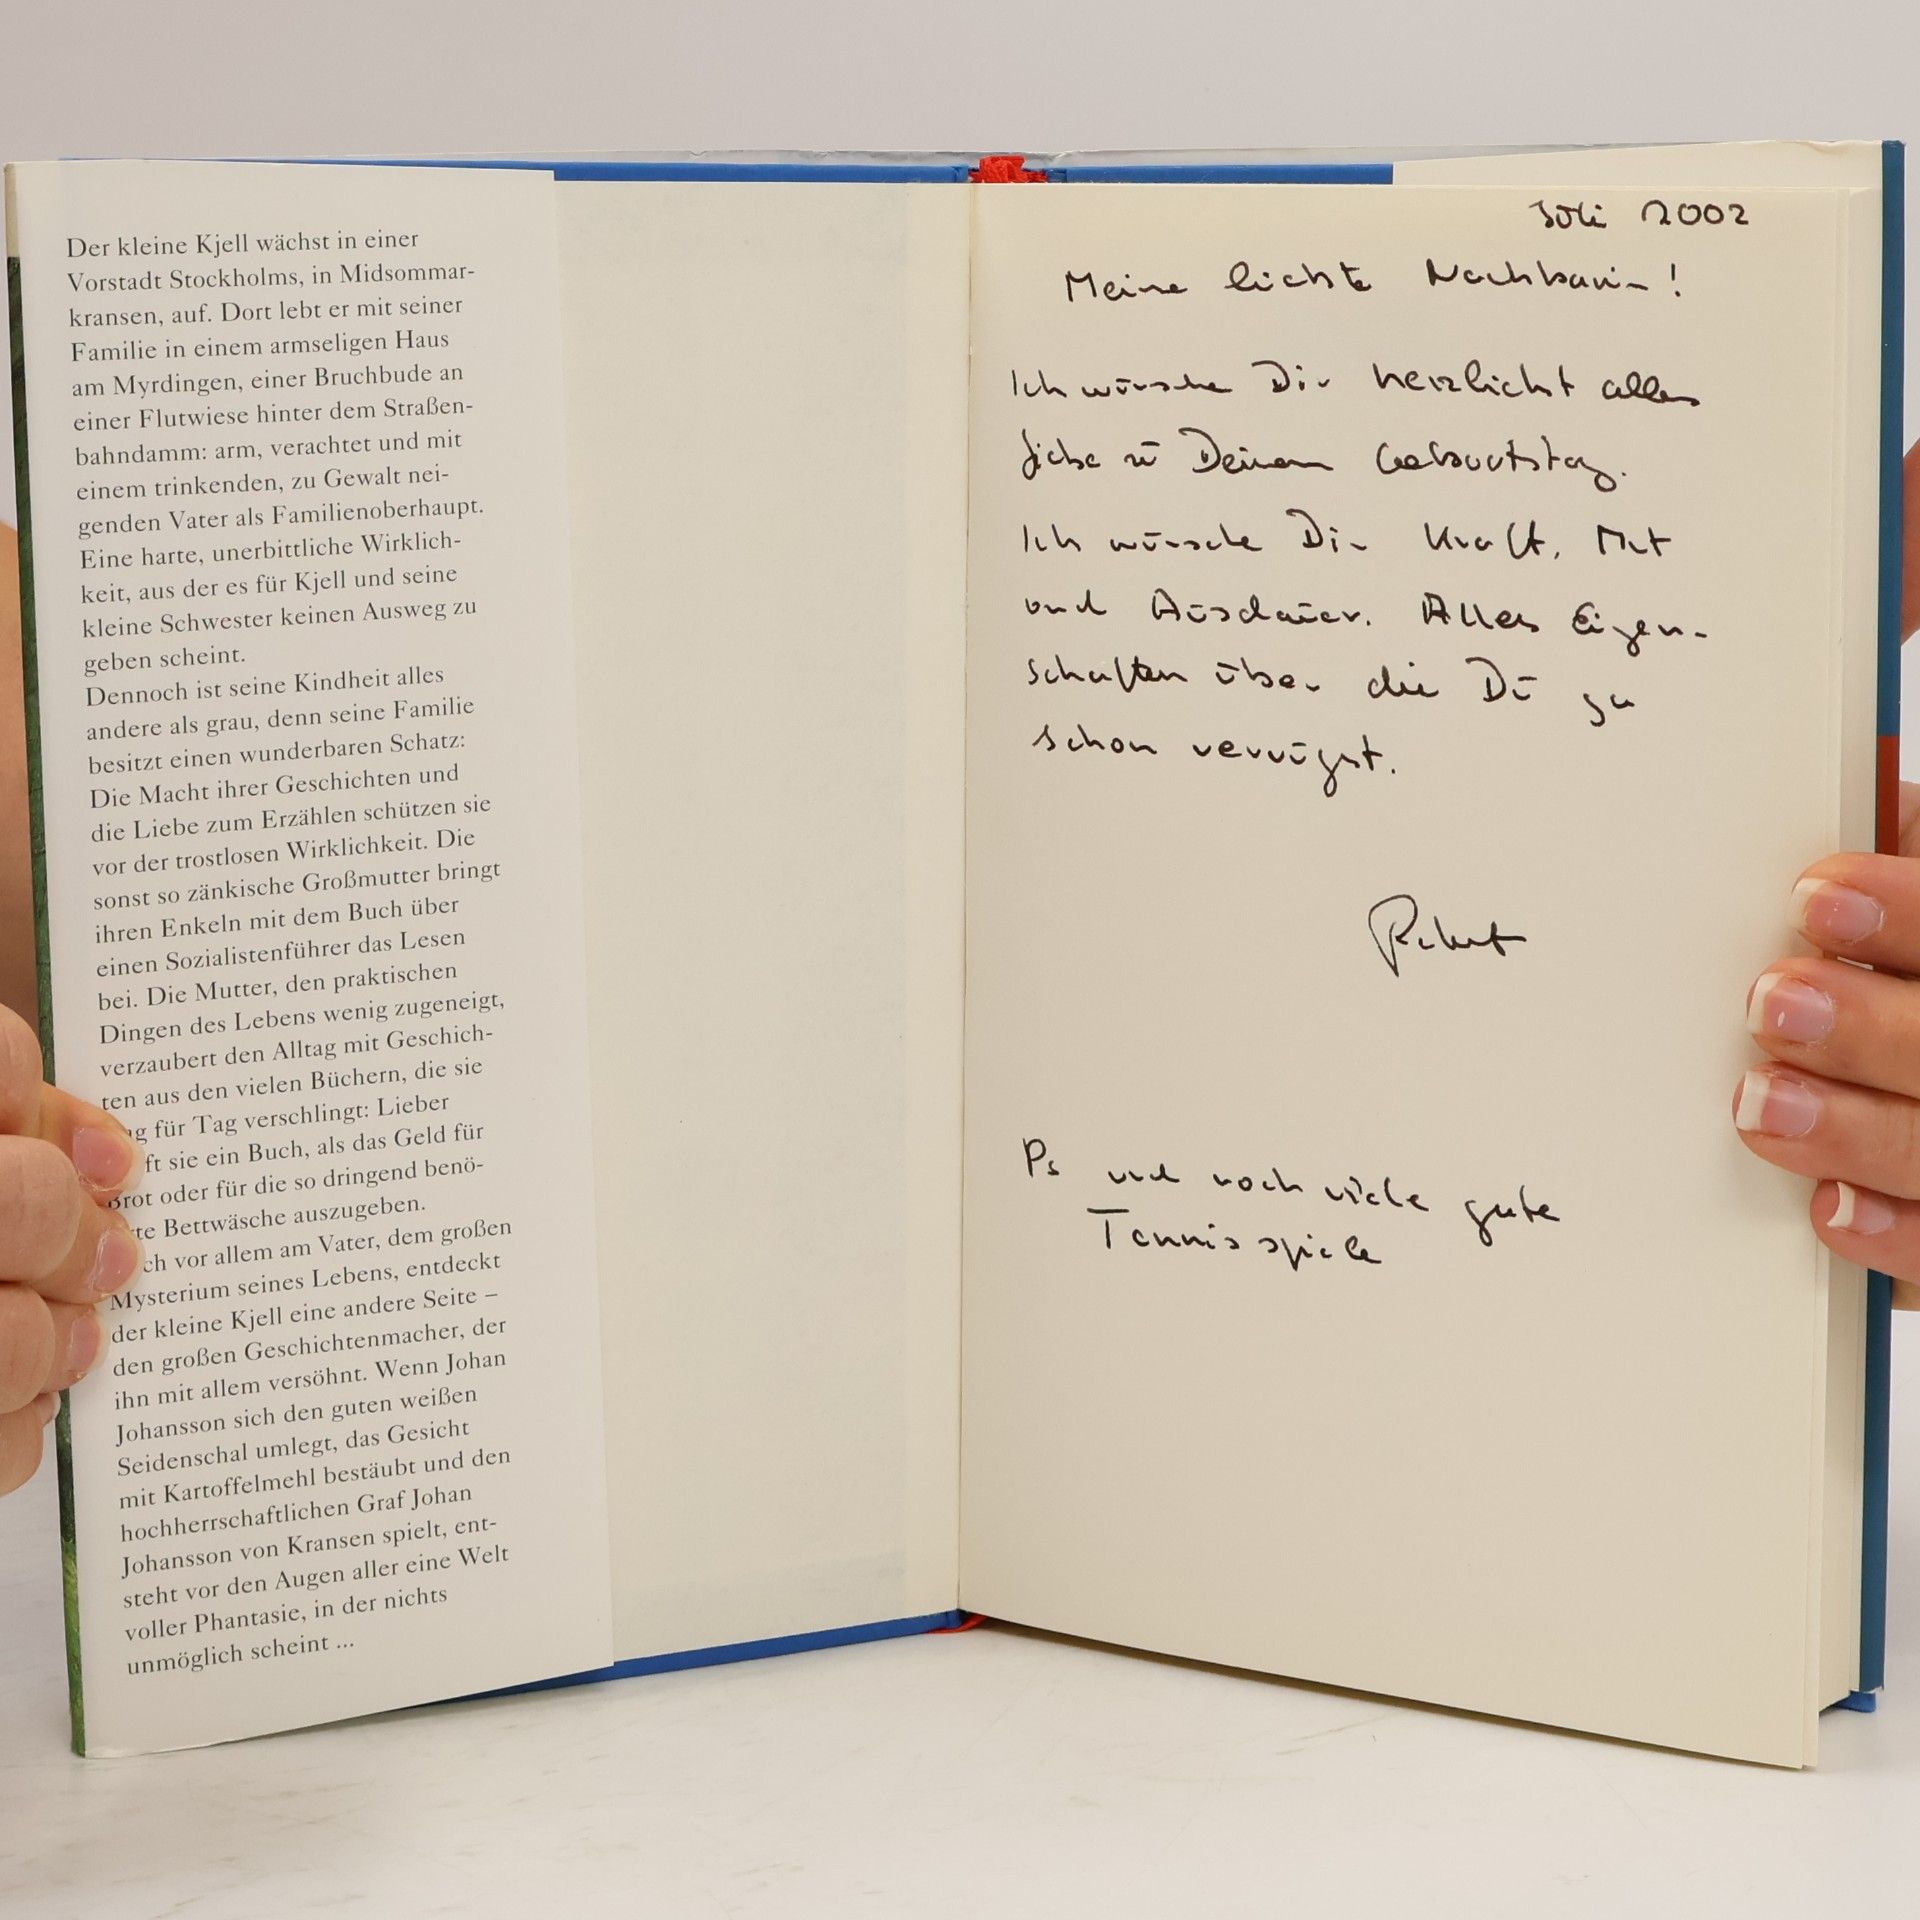 Der kleine Kjell wächst in einer
Vorstadt Stockholms, in Midsommar-
kransen, auf. Dort lebt er mit seiner
Familie in einem armseligen Haus
am Myrdingen, einer Bruchbude an
einer Flutwiese hinter dem Straßen-
bahndamm: arm, verachtet und mit
einem trinkenden, zu Gewalt nei-
genden Vater als Familienoberhaupt.
Eine harte, unerbittliche Wirklich-
keit, aus der es für Kjell und seine
kleine Schwester keinen Ausweg zu
geben scheint.
Dennoch ist seine Kindheit alles
andere als grau, denn seine Familie
besitzt einen wunderbaren Schatz:
Die Macht ihrer Geschichten und
die Liebe zum Erzählen schützen sie
vor der trostlosen Wirklichkeit. Die
sonst so zänkische Großmutter bringt
ihren Enkeln mit dem Buch über
einen Sozialistenführer das Lesen
bei. Die Mutter, den praktischen
Dingen des Lebens wenig zugeneigt,
verzaubert den Alltag mit Geschich-
ten aus den vielen Büchern, die sie
für Tag verschlingt: Lieber
sie ein Buch, als das Geld für
Brot oder für die so dringend benö-
te Bettwäsche auszugeben.
ch vor allem am Vater, dem großen
Mysterium seines Lebens, entdeckt
der kleine Kjell eine andere Seite –
den großen Geschichtenmacher, der
ihn mit allem versöhnt. Wenn Johan
Johansson sich den guten weißen
Seidenschal umlegt, das Gesicht
mit Kartoffelmehl bestäubt und den
hochherrschaftlichen Graf Johan
Johansson von Kransen spielt, ent-
steht vor den Augen aller eine Welt
voller Phantasie, in der nichts
unmöglich scheint ...
Juli 2002
Meine liebste Nachbarin!
Ich wünsche Dir herzlichst alles
Liebe zu Deinem Geburtstag.
Ich wünsche Dir Kraft, Mut
und Ausdauer. Alles Eigen-
schaften über die Du ja
schon verfügst.
Ps und noch viele gute
Tennisspiele